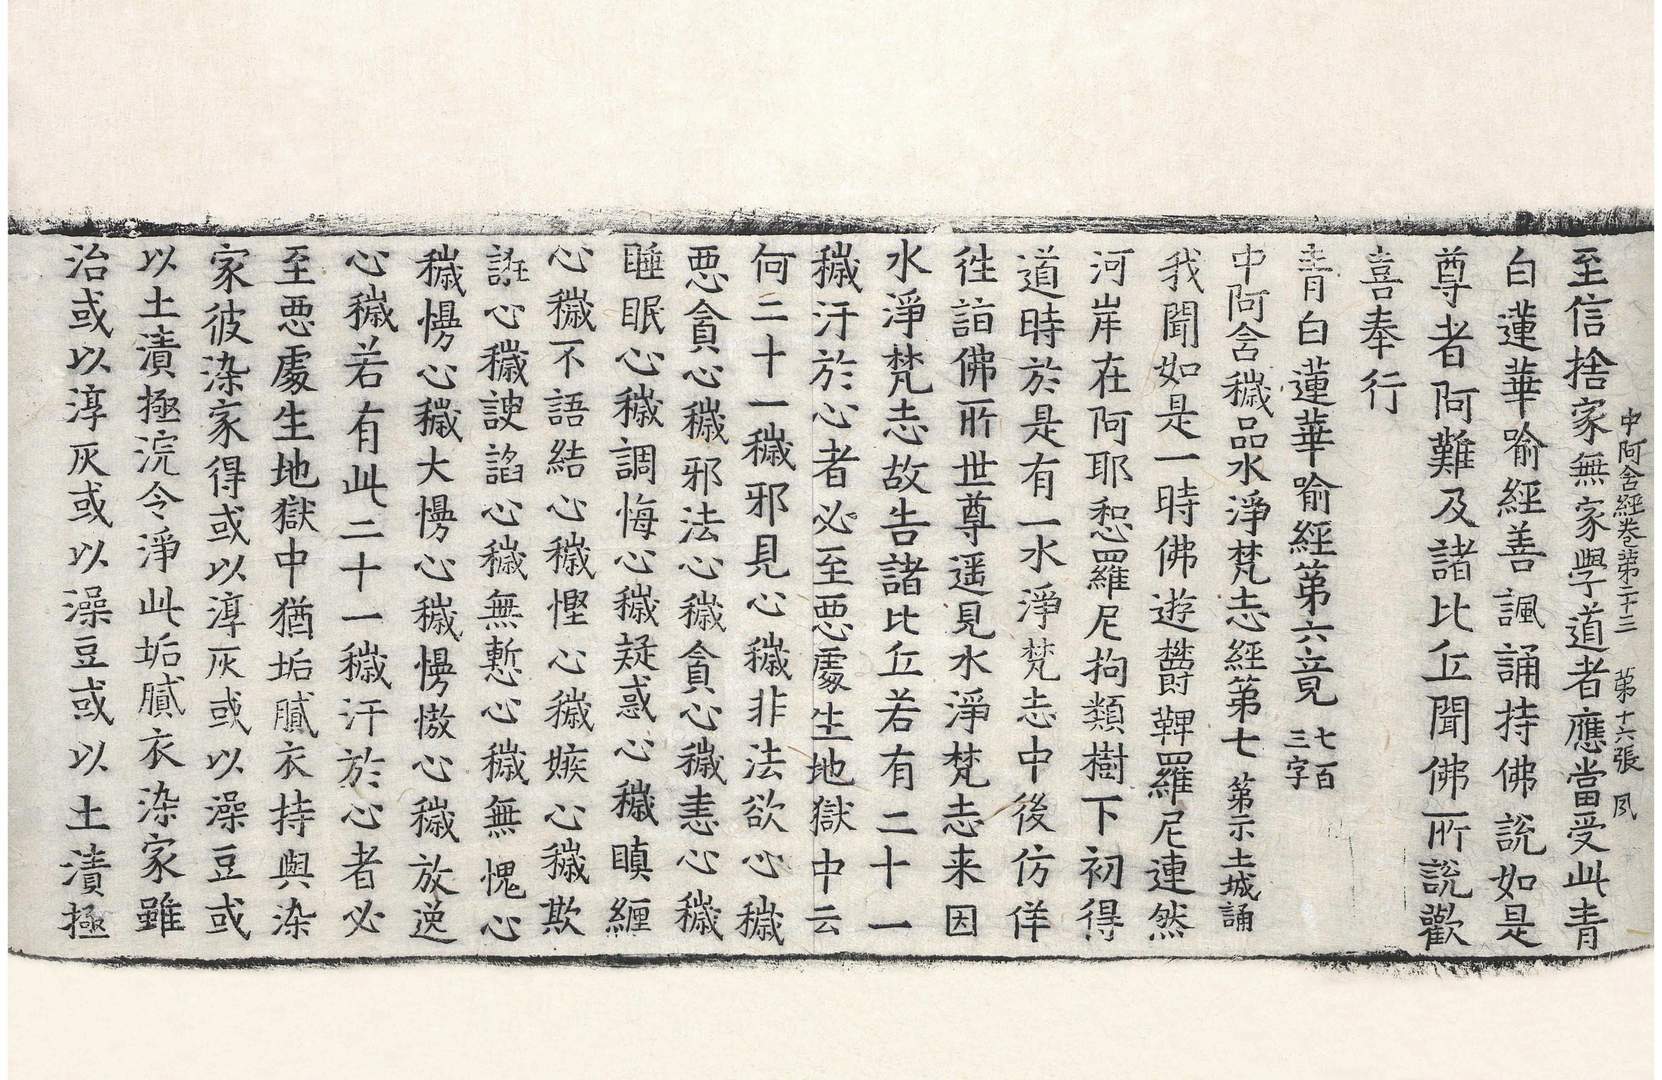 中阿含經卷第二十三　第十六張　夙
至信捨家無家學道者應當受此青
白蓮華喻經善諷誦持佛說如是
尊者阿難及諸比丘聞佛所說歡
喜奉行
青白蓮華喻經第六竟 七百三字
中阿含穢品水淨梵志經第七 第示土城誦
我聞如是一時佛遊鬱鞞羅尼連然
河岸在阿耶惒羅尼拘類樹下初得
道時於是有一水淨梵志中後仿佯
往詣佛所世尊遥見水淨梵志来因
水淨梵志故告諸比丘若有二十一
穢汙於心者必至惡處生地獄中云
何二十一穢邪見心穢非法欲心穢
惡貪心穢邪法心穢貪心穢恚心穢
睡眠心穢調悔心穢疑惑心穢瞋纏
心穢不語結心穢慳心穢嫉心穢欺
誑心穢諛諂心穢無慙心穢無愧心
穢慢心穢大慢心穢慢慠心穢放逸
心穢若有此二十一穢汙於心者必
至惡處生地獄中猶垢膩衣持與染
家彼染家得或以淳灰或以澡豆或
以土漬極浣令淨此垢膩衣染家雖
治或以淳灰或以澡豆或以土漬極